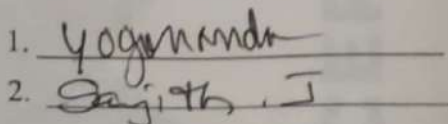 1. Yogananda
2. Sajith. J